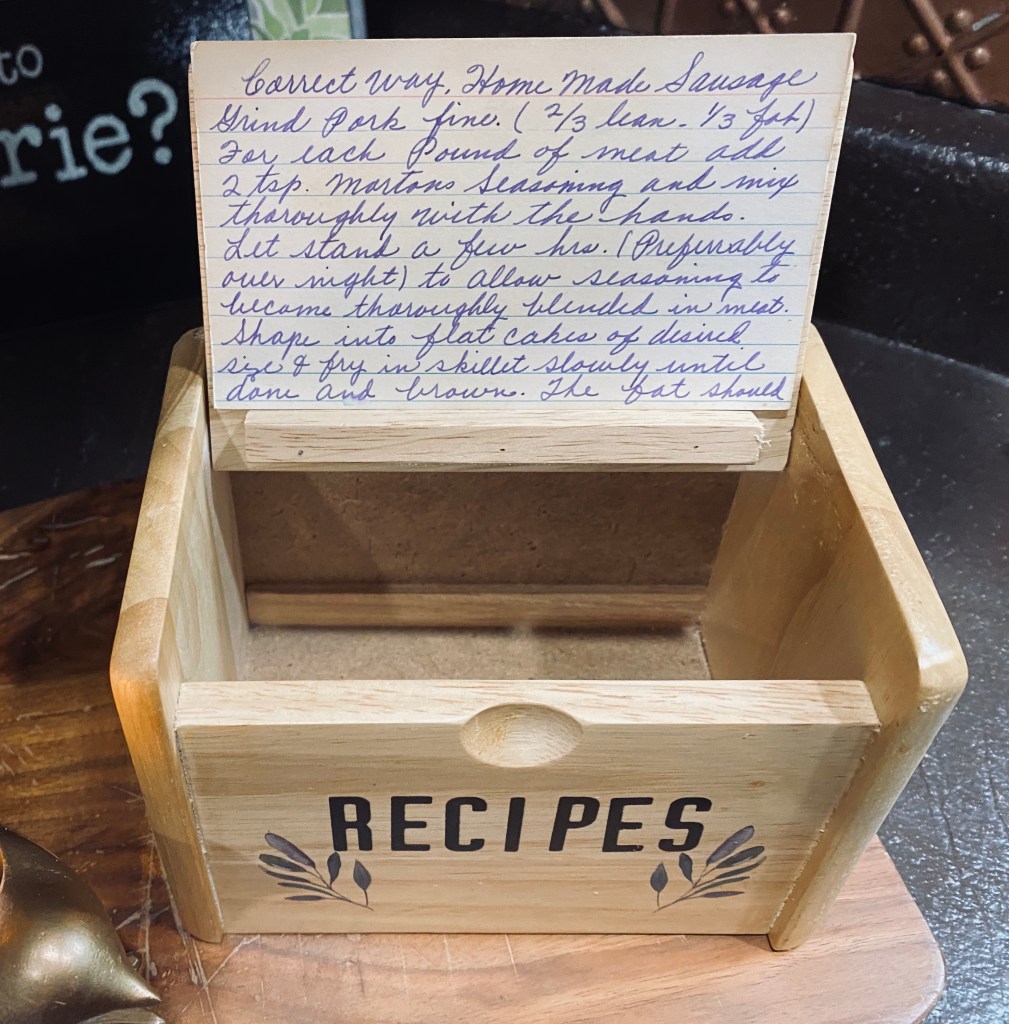 to
rie?
Correct Way, Home Made Sausage
Grind Pork fine. (2/3 lean - 1/3 fat)
For each Pound of meat add
2 tsp. Mortons Seasoning and mix
thoroughly with the hands.
Let stand a few hrs. (Preferrably
over night) to allow seasoning to
become thoroughly blended in meat.
Shape into flat cakes of desired
size & fry in skillet slowly until
done and brown. The fat should
RECIPES